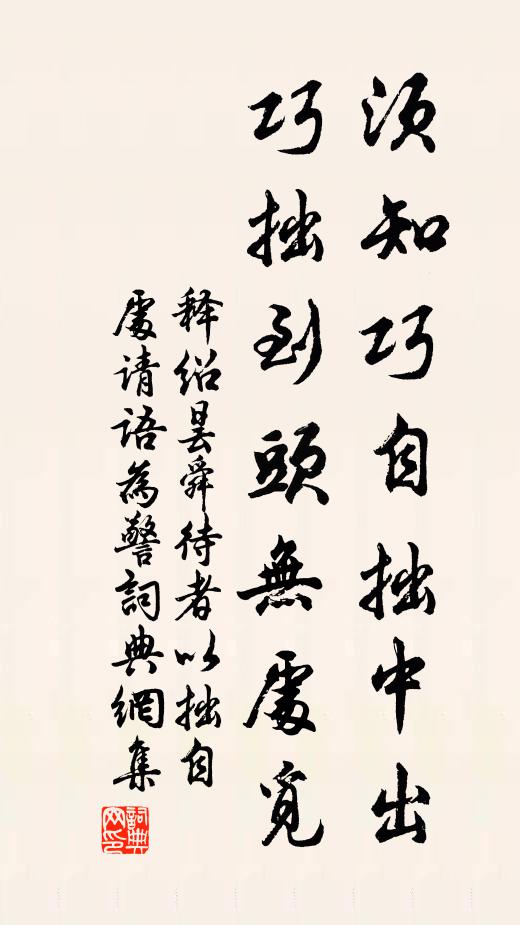 須知巧自拙中出
巧拙到頭無處覓
释绍昙舜待者以拙自
處请语為警詞典網集
詞典
网印